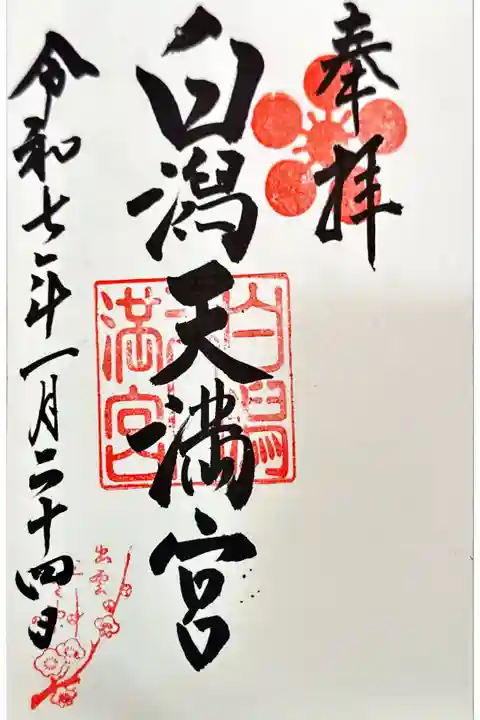 奉拝
白潟天満宮
白潟天満宮
令和七年一月二十四日
出雲